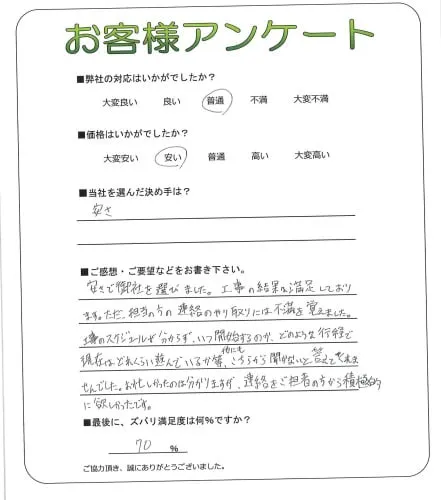 お客様アンケート
■弊社の対応はいかがでしたか？
大変良い 良い 普通 不満 大変不満
■価格はいかがでしたか？
大変安い 安い 普通 高い 大変高い
■当社を選んだ決め手は？
安さ
■ご感想・ご要望などをお書き下さい。
安さで御社を選びました。工事の結果は満足しており
ます。ただ、担当の方の連絡のやり取りには不満を覚えました。
工事のスケジュールが分からず、いつ開始するのか、どのような行程で
他にも
現在はどれくらい進んでいるか等、こちらから聞かないと答えて
せんでした。お忙しかったのは分かりますが、連絡をご担当の方から積極的
に欲しかったです。
■最後に、ズバリ満足度は何％ですか？
70 ％
ご協力頂き、誠にありがとうございました。